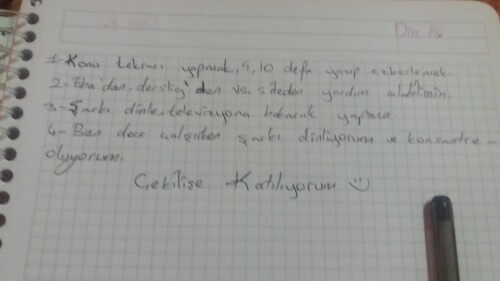 1-Konu tekrarı yapmak, 4, 10 defa yazıp ezberlemek.
2-Eba'dan, derslig'den vs. siteden yardım alabilirsin.
3-Şarkı dinle, televizyona bakarak yapma.
4-Ben ders çalışırken şarkı dinliyorum ve konsantre-
oluyorum.
Çekilişe Katılıyorum :)